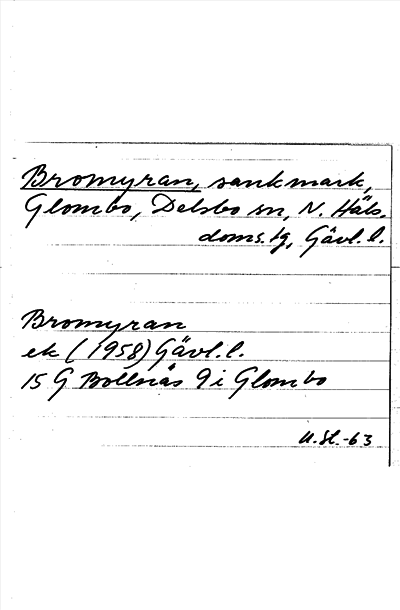 Bromyran, sankmark,
Glombo, Delsbo sn, N. Häls.
doms.tg, Gävl.l.
Bromyran
ek (1958) Gävl.l.
15 G Bollnäs 9 i Glombo
U.St.-63